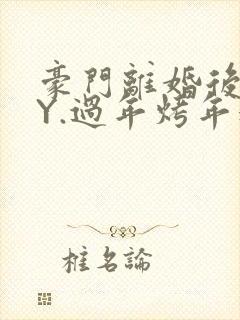 豪門離婚後
Y.過年烤年
椎名論